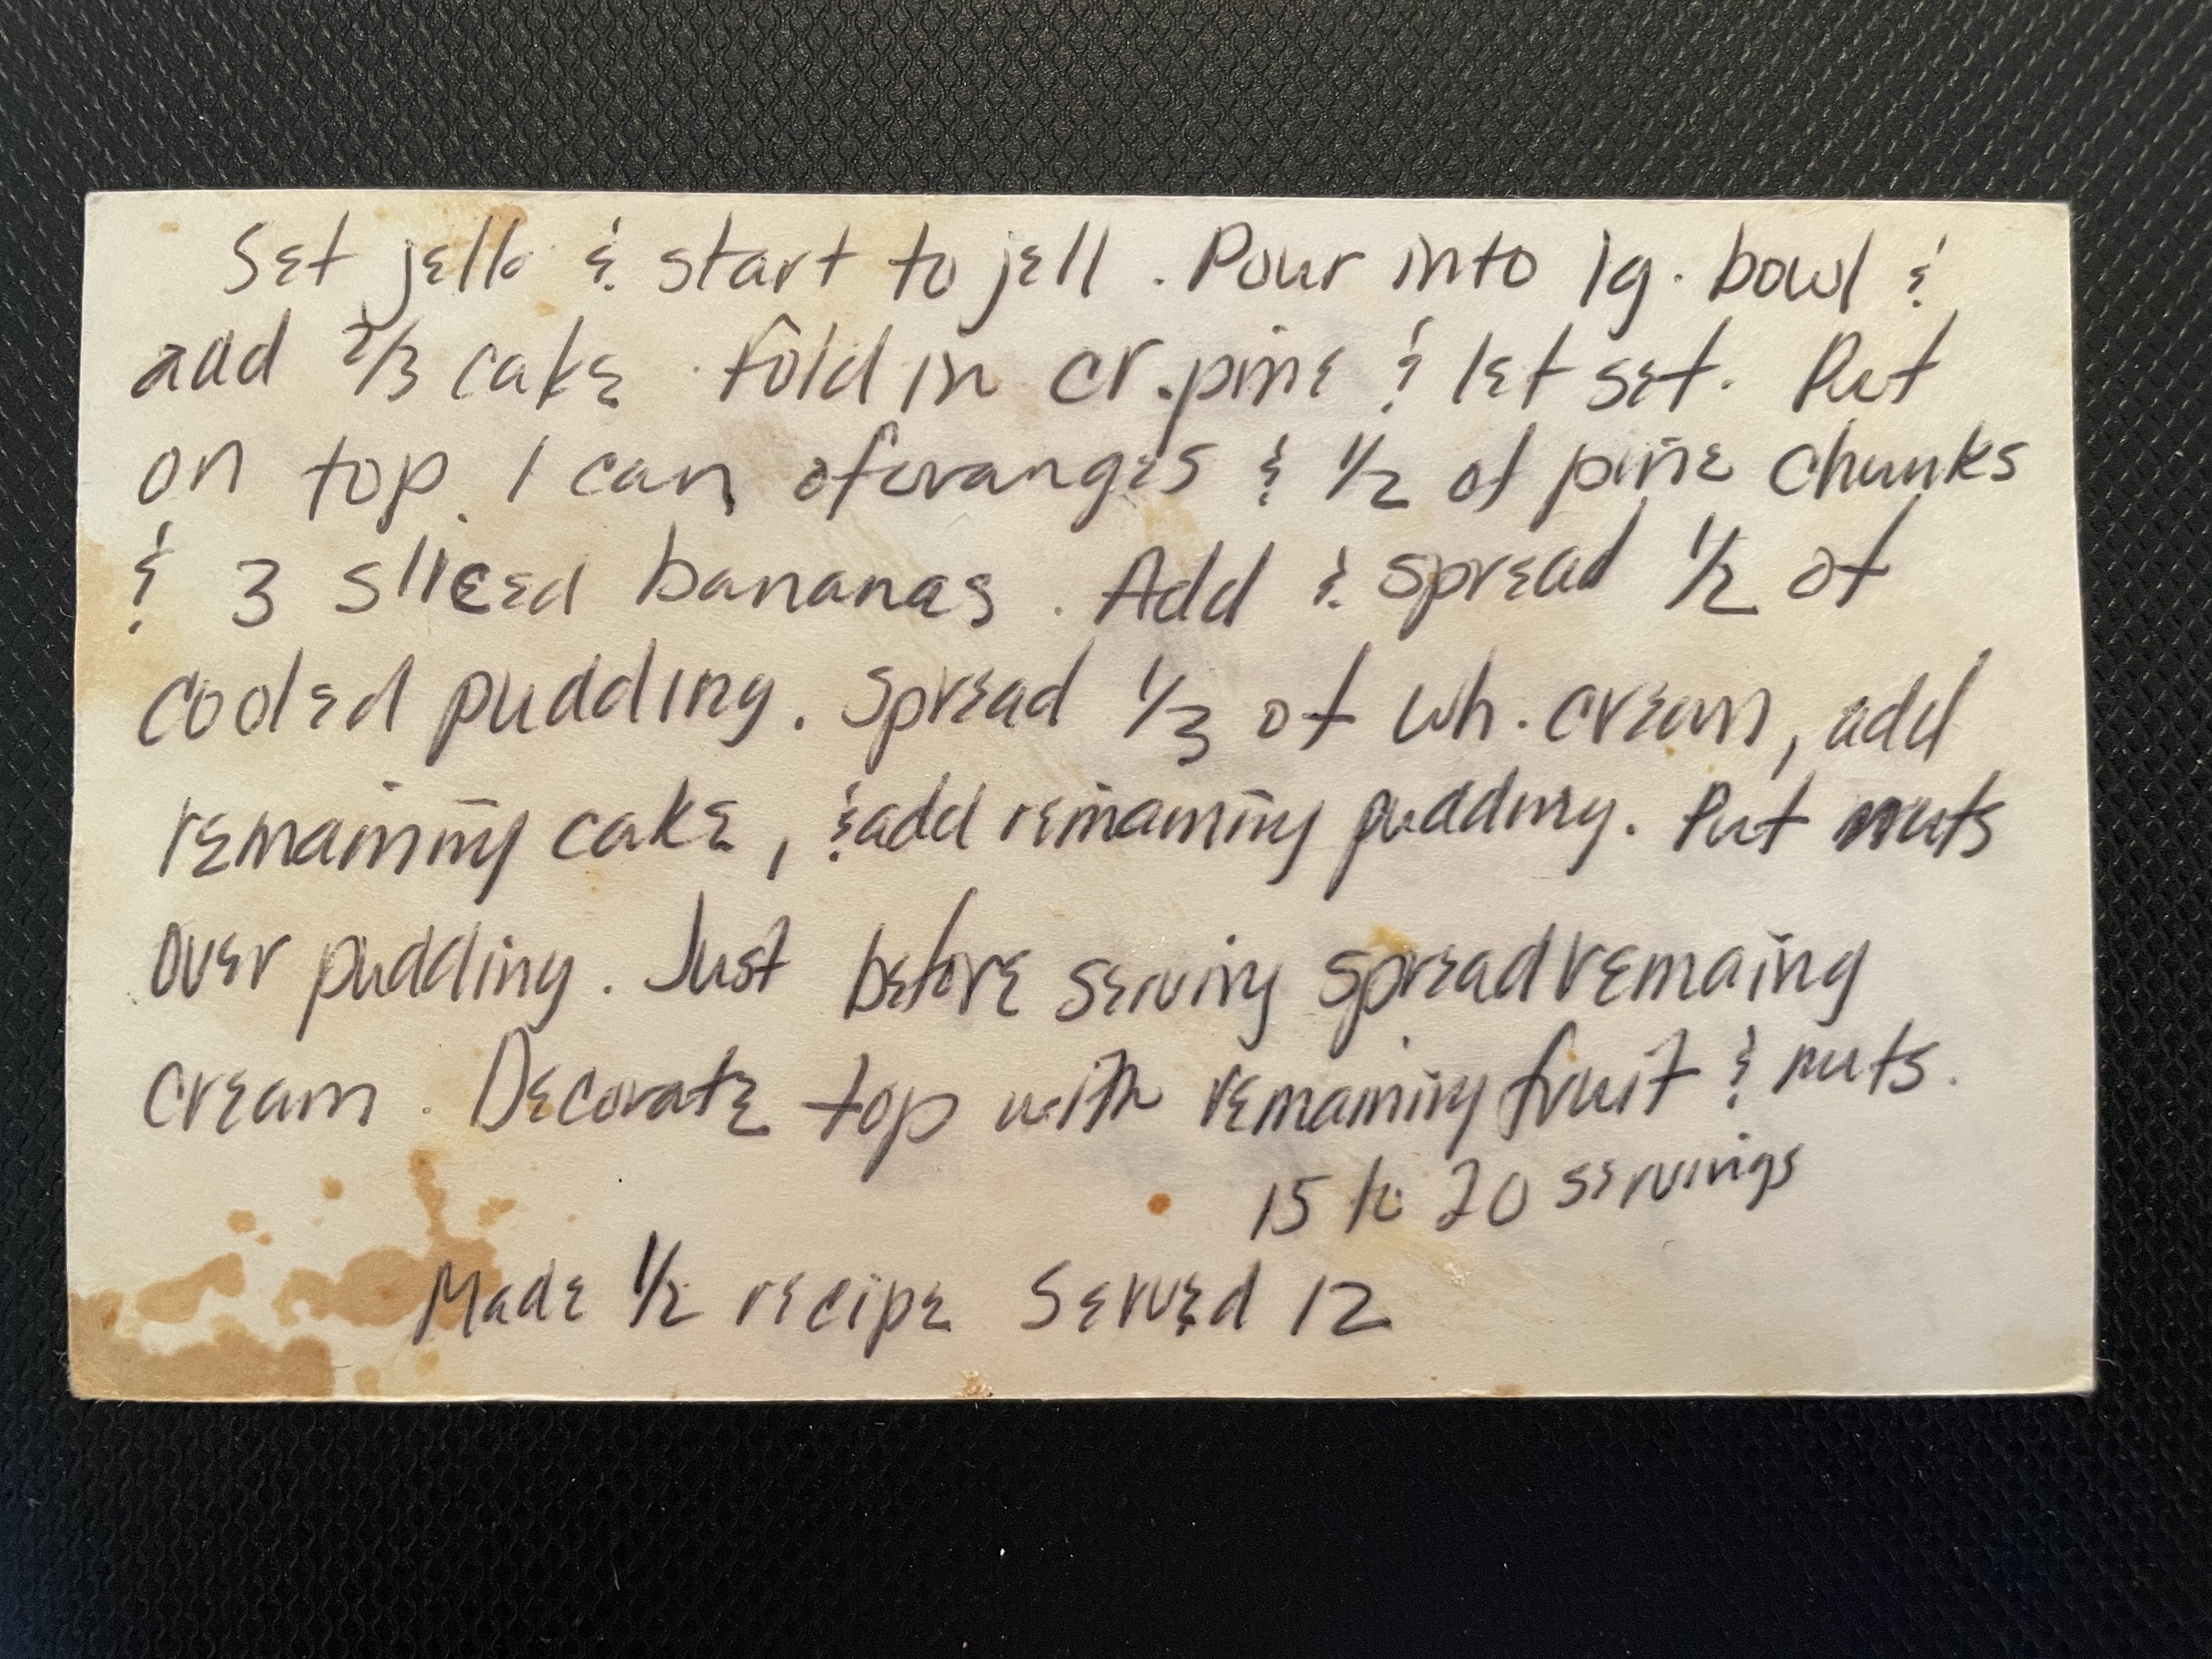 Set jello & start to jell. Pour into lg. bowl &
add 2/3 cake. Fold in cr. pine & let set. Put
on top 1 can of oranges & 1/2 of pine chunks
& 3 sliced bananas. Add & spread 1/2 of
cooled pudding. Spread 1/3 of wh. cream, add
remaining cake, & add remaining pudding. Put nuts
over pudding. Just before serving spread remaing
cream. Decorate top with remaining fruit & nuts.
15 to 20 servings
Made 1/2 recipe Served 12